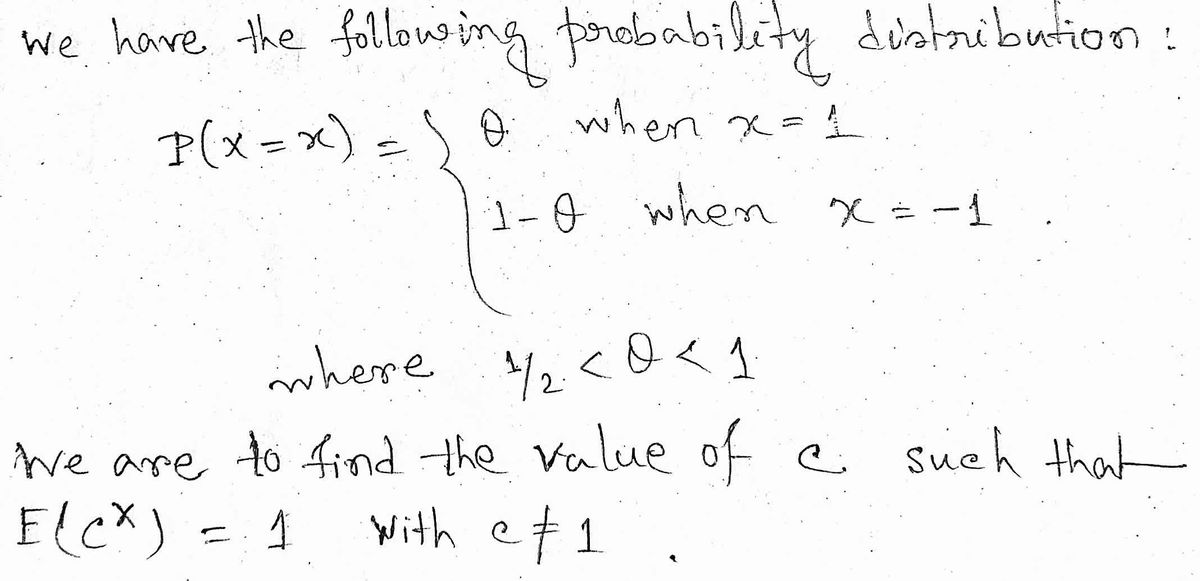 We have the following probability distribution :
P(X = x) = { θ when x = 1
1 - θ when x = -1 .
where 1/2 < θ < 1
We are to find the value of c such that
E(c^X) = 1 with c ≠ 1 .